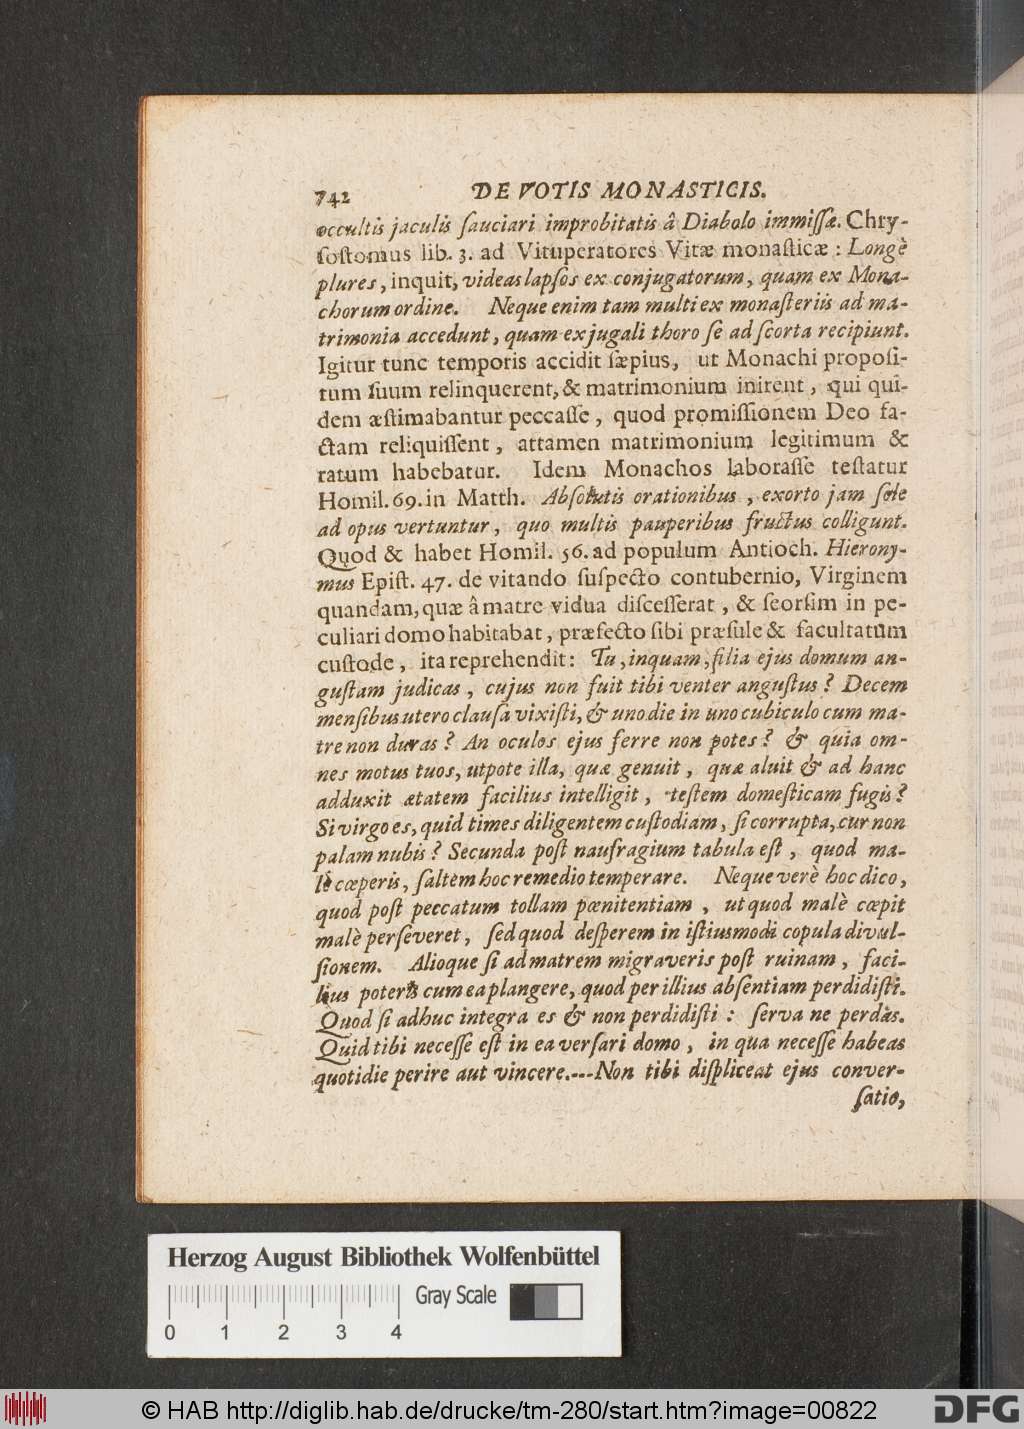 742 DE VOTIS MONASTICIS.
occultis jaculis ſauciari improbitatis â Diabolo immiſſæ. Chry-
ſoſtomus lib. 3. ad Vituperatores Vitæ monaſticæ : Longè
plures, inquit, videas lapſos ex conjugatorum, quam ex Mona-
chorum ordine. Neque enim tam multi ex monaſteriis ad ma-
trimonia accedunt, quam ex jugali thoro ſe ad ſcorta recipiunt.
Igitur tunc temporis accidit ſæpius, ut Monachi propoſi-
tum ſuum relinquerent, & matrimonium inirent, qui qui-
dem æſtimabantur peccaſſe, quod promiſſionem Deo fa-
ctam reliquiſſent, attamen matrimonium legitimum &
ratum habebatur. Idem Monachos laboraſſe teſtatur
Homil. 69. in Matth. Abſolutis orationibus, exorto jam ſole
ad opus vertuntur, quo multis pauperibus fructus colligunt.
Quod & habet Homil. 56. ad populum Antioch. Hierony-
mus Epiſt. 47. de vitando ſuſpecto contubernio, Virginem
quandam, quæ â matre vidua diſceſſerat, & ſeorſim in pe-
culiari domo habitabat, præfecto ſibi præſule & facultatum
cuſtode, ita reprehendit: Tu, inquam, filia ejus domum an-
guſtam judicas, cujus non fuit tibi venter anguſtus? Decem
menſibus utero clauſa vixiſti, & uno die in uno cubiculo cum ma-
tre non duras? An oculos ejus ferre non potes? & quia om-
nes motus tuos, utpote illa, quæ genuit, quæ aluit & ad hanc
adduxit ætatem facilius intelligit, teſtem domeſticam fugis?
Si virgo es, quid times diligentem cuſtodiam, ſi corrupta, cur non
palam nubis? Secunda poſt naufragium tabula eſt, quod ma-
lè cœperis, ſaltem hoc remedio temperare. Neque verè hoc dico,
quod poſt peccatum tollam pœnitentiam, ut quod malè cœpit
malè perſeveret, ſed quod deſperem in iſtiusmodi copula divul-
ſionem. Alioque ſi ad matrem migraveris poſt ruinam, faci-
lius poteris cum ea plangere, quod per illius abſentiam perdidiſti.
Quod ſi adhuc integra es & non perdidiſti : ſerva ne perdas.
Quid tibi neceſſe eſt in ea verſari domo, in qua neceſſe habeas
quotidie perire aut vincere.---Non tibi diſpliceat ejus conver-
ſatio,
Herzog August Bibliothek Wolfenbüttel
Gray Scale
0 1 2 3 4
© HAB http://diglib.hab.de/drucke/tm-280/start.htm?image=00822
DFG